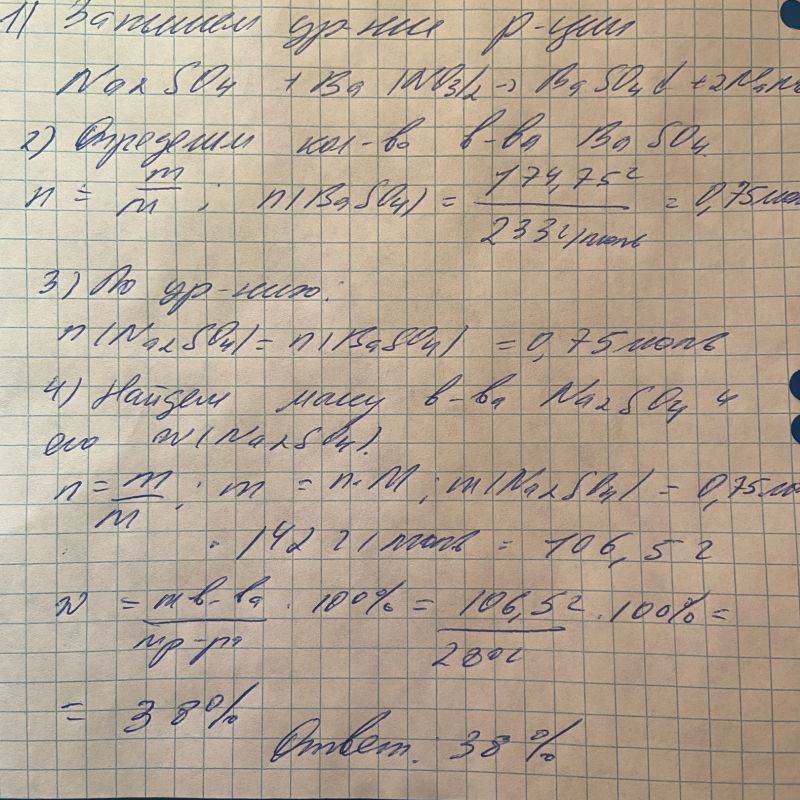 1) Запишем ур-ние р-ции
Na2SO4 + Ba(NO3)2 → BaSO4↓ + 2NaNO
2) Определим кол-во в-ва BaSO4.
n = m/M ; n(BaSO4) = 174,75г/233г/моль = 0,75мол
3) По ур-нию:
n(Na2SO4) = n(BaSO4) = 0,75моль
4) Найдем массу в-ва Na2SO4 и
его w(Na2SO4).
n = m/M ; m = n·M ; m(Na2SO4) = 0,75мол
· 142г/моль = 106,5г
w = mв-ва/mр-ра · 100% = 106,5г/280г · 100% =
= 38%
Ответ: 38%